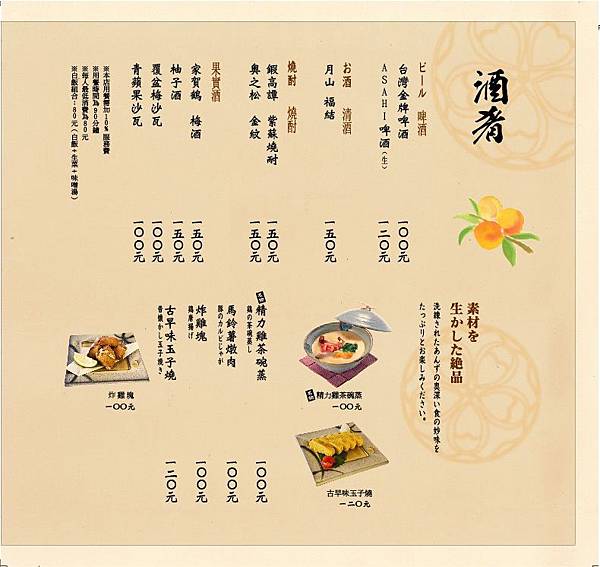 酒肴
ビール 啤酒
台灣金牌啤酒 一〇〇元
ASAHI啤酒(生) 一二〇元
お酒 清酒
月山 福結 一五〇元
燒酎 燒酎
鍜高譚 紫蘇燒酎 一五〇元
奧之松 金紋 一五〇元
果實酒
家賀鶴 梅酒 一五〇元
柚子酒 一五〇元
覆盆梅沙瓦 一〇〇元
青蘋果沙瓦 一〇〇元
※本店用餐需加10%服務費
※用餐時間為90分鐘
※每人最低消費為80元
※白飯組合:80元(白飯+生菜+味噌湯)
素材を
生かした絶品
洗練されたあんずの奥深い食の妙味を
たっぷりとお楽しみください。
精力雞茶碗蒸
一〇〇元
古早味玉子燒
一二〇元
精力雞茶碗蒸 一〇〇元
鶏の茶碗蒸し
馬鈴薯燉肉 一〇〇元
豚のカルビじゃが
炸雞塊 一〇〇元
鶏唐揚げ
古早味玉子燒 一二〇元
昔懐かし玉子焼き
炸雞塊
一〇〇元